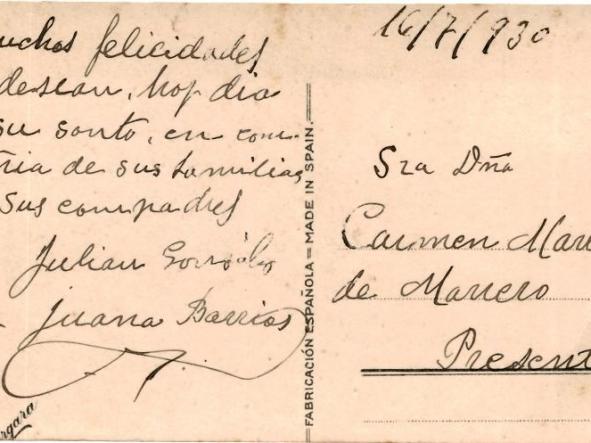 uchos felicidades
desean, hoy dia
su santo, en com-
ñia de sus familias
sus compadres
Julian González
Juana Barrios
FABRICACIÓN ESPAÑOLA — MADE IN SPAIN.
16/7/930
Sra Dña
Carmen Mar
de Marrero
Present
rgara